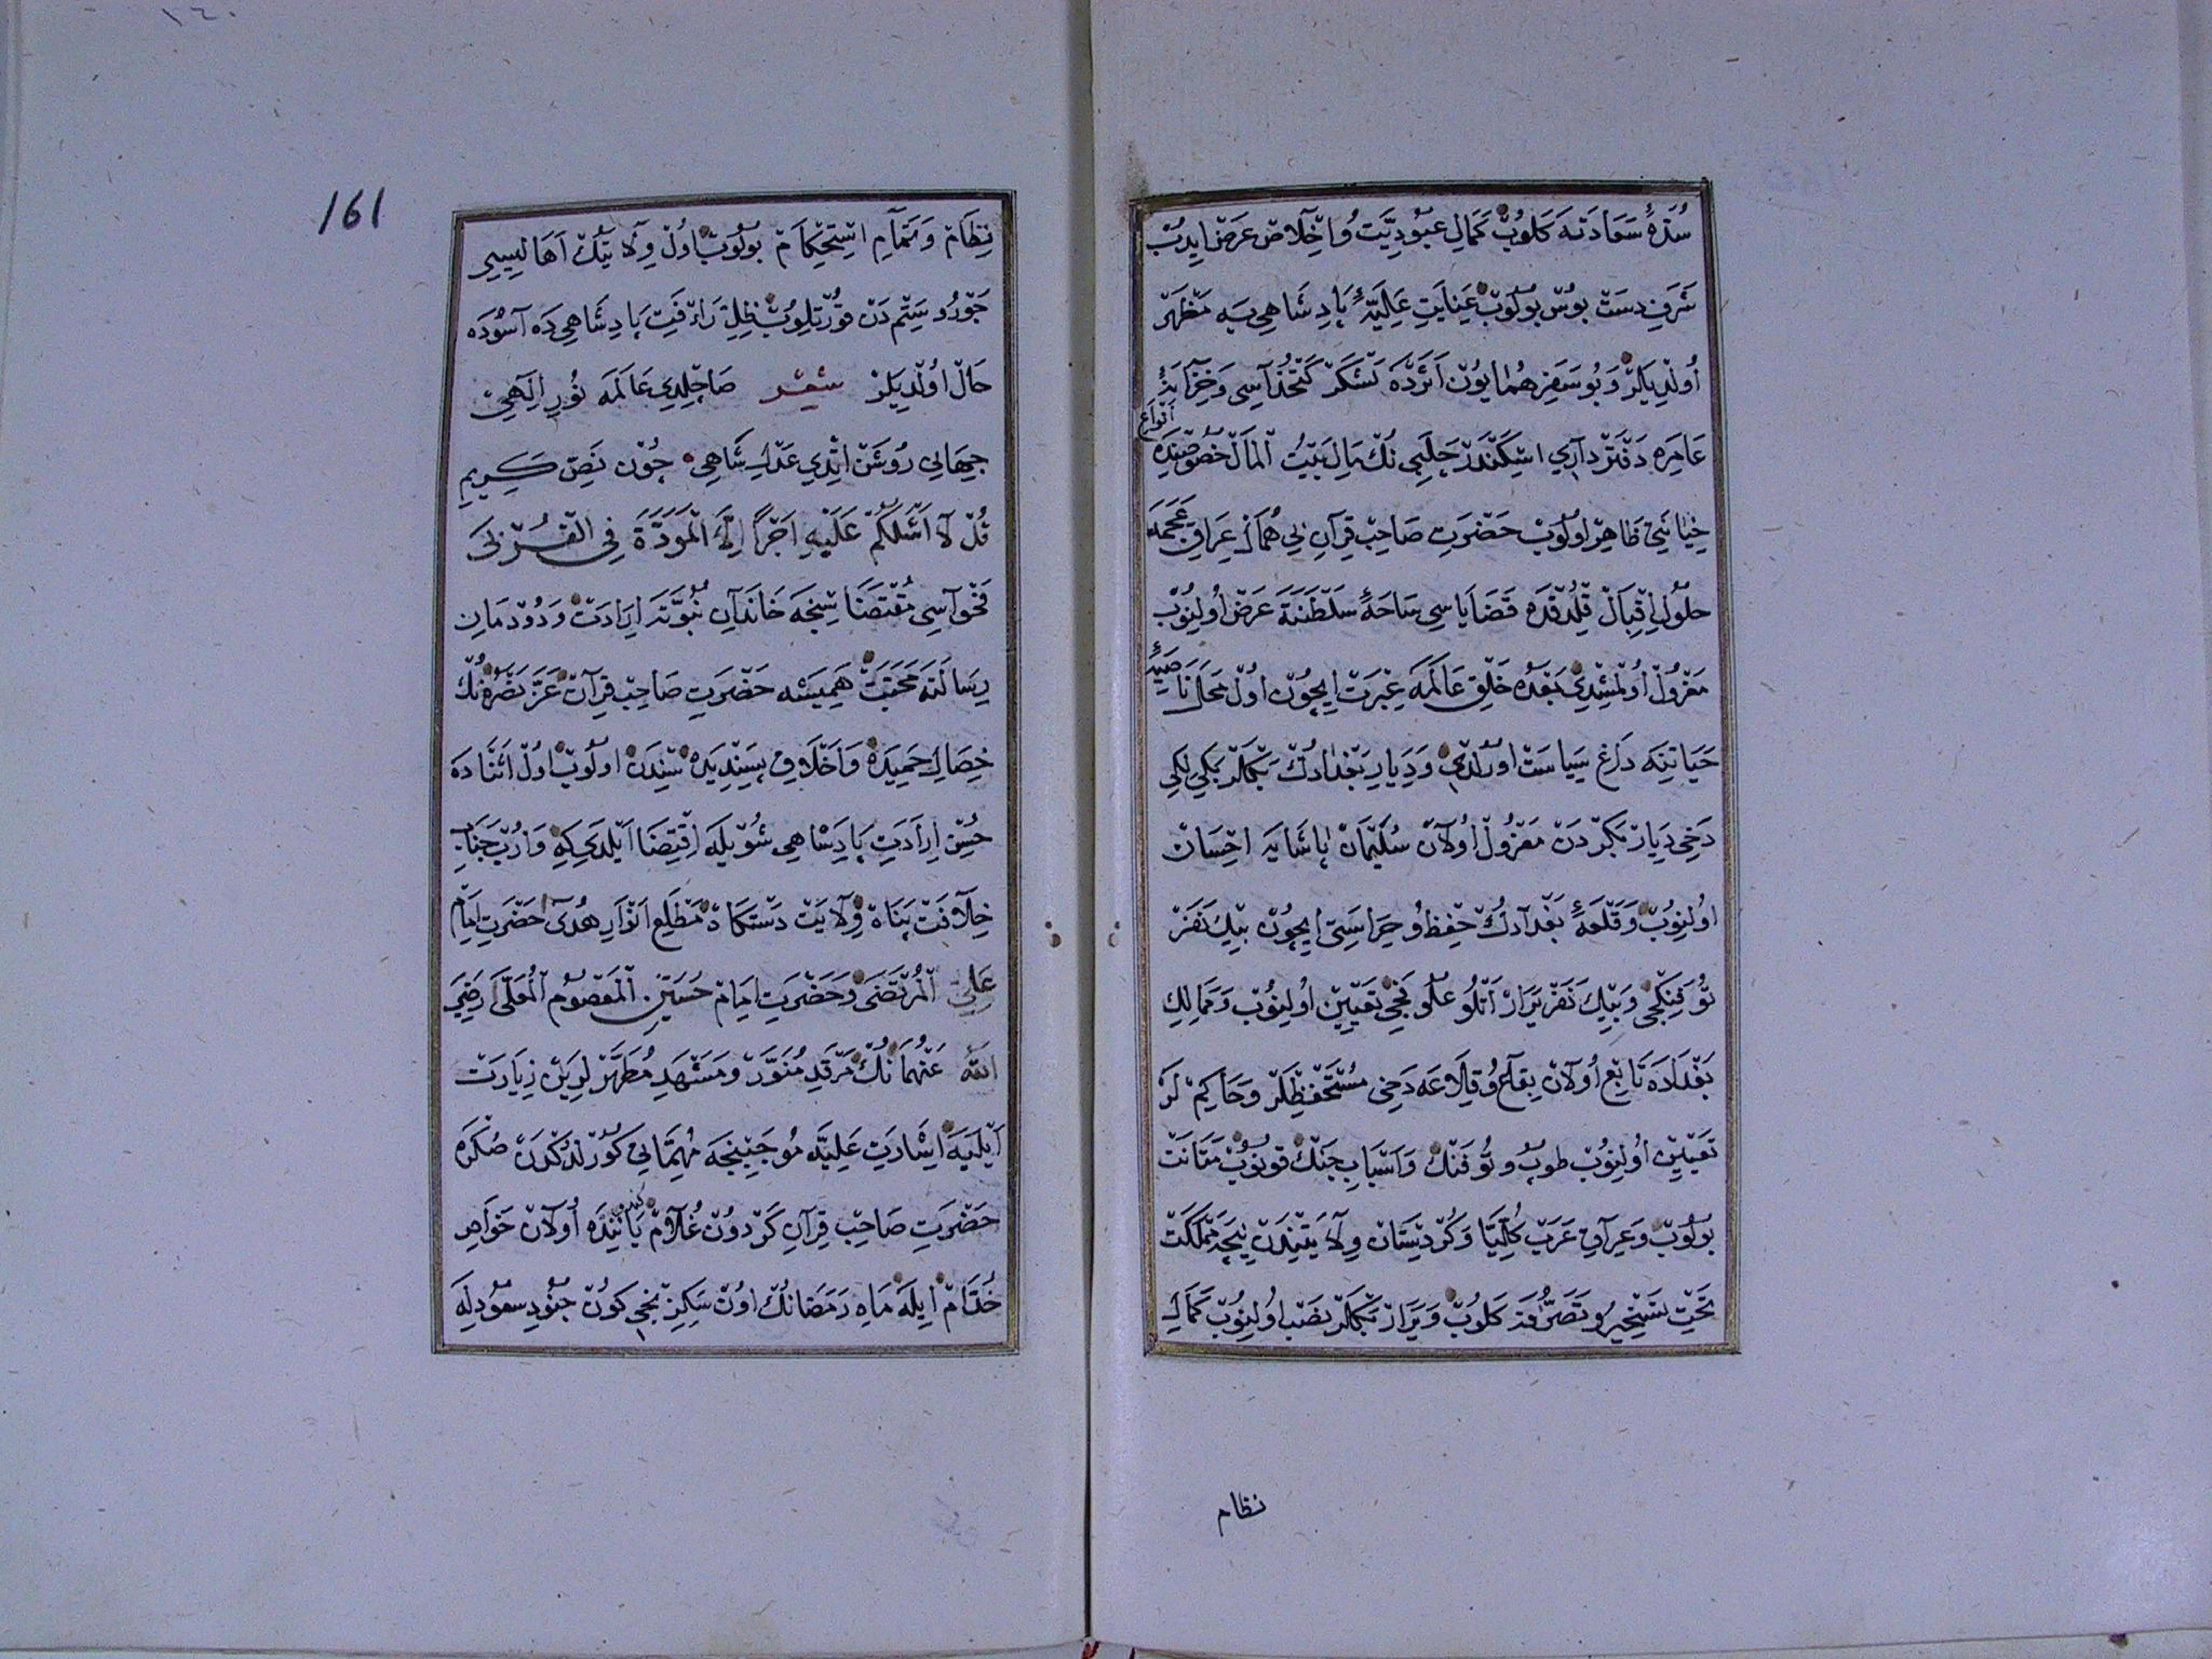 سُدَّهٔ سَعَادَتَه كَلُوبْ كَمَالِ عُبُودِيَّتْ وُ اِخْلَاصْ عَرْضْ اِيدُبْ
شَرَفِ دَسْتْ بُوسْ بُولُوبْ عِنَايَتِ عَلِيَّهٔ پَادِشَاهِي يَه مَظْهَرْ
اُولْدِيلَرْ وَ بُو سَفَرِ هُمَايُونْ اَثَرْدَه لَشْكَرْ كَتْخُدَاسِي وَ خِزَانَهٔ
عَامِرَه دَفْتَرْدَارِي اِسْكَنْدَرْ چَلَبِي نُكْ مَالِ بَيْتُ الْمَالْ خُصُوصِنْدَه اَنْوَاعِ
خِيَانَتِي ظَاهِرْ اُولُوبْ حَضْرَتِ صَاحِبْ قِرَانِي هُمَا عِرَاقِ عَجَمَه
حُلُولِ اِقْبَالْ قِلْدُقْدَه قَضَايَاسِي سَاحَهٔ سَلْطَنَتَه عَرْضْ اُولِنُوبْ
مَعْزُولْ اُولْمِشْدِي بَعْدَهُ خَلْقِ عَالَمَه عِبْرَتْ اِيچُونْ اُولْ مَحَلْدَا صَحِيفَهٔ
حَيَاتِنَه دَاغِ سِيَاسَتْ اُورُلْدِي وَ دِيَارِ بَغْدَادُكْ بَكْلَرْ بَكِيلِكِي
دَخِي دِيَارْ بَكِرْدَنْ مَعْزُولْ اُولَانْ سُلَيْمَانْ پَاشَايَه اِحْسَانْ
اُولِنُوبْ وَ قَلْعَهٔ بَغْدَادُكْ حِفْظُ وُ حِرَاسَتِي اِيچُونْ بِيكْ نَفَرْ
تُوفَنْكْجِي وَ بِيكْ نَفَرْ يَرَارْ آتْلُو عُلُوفَجِي تَعْيِينْ اُولِنُوبْ وَ مَمَالِكِ
بَغْدَادَه تَابِعْ اُولَانْ بِقَاعُ وُ قِلَاعَه دَخِي مُسْتَحْفِظْلَرْ وَ حَاكِمْ لَرْ
تَعْيِينْ اُولِنُوبْ طُوبْ وُ تُوفَنْكْ وَ اَسْبَابِ جَنْكْ قُونُوبْ مَتَانَتْ
بُولُوبْ وَ عِرَاقِ عَرَبْ كُلِّيًّا وَ كُرْدِسْتَانْ وِلَايَتِنْدَنْ نِيجَه مَمْلَكَتْ
تَحْتِ تَسْخِيرُ وُ تَصَرُّفَه كَلُوبْ وَ يَرَارْ بَكْلَرْ نَصْبْ اُولِنُوبْ كَمَالِ
نظام
161
نِظَامْ وَ تَمَامِ اِسْتِحْكَامْ بُولُوبْ اُولْ وِلَايَتُكْ اَهَالِيسِي
جَوْرُ وُ سِتَمْدَنْ قُورْتُلُوبْ ظِلِّ رَأْفَتِ پَادِشَاهِي دَه آسُودَه
حَالْ اُولْدِيلَرْ شِعْر صَاچِلْدِي عَالَمَه نُورِ اِلَهِي
جِهَانِي رُوشَنْ اِتْدِي عَدْلِ شَاهِي چُونْ نَصِّ كَرِيمِ
قُلْ لَا اَسْئَلُكُمْ عَلَيْهِ اَجْرًا اِلَّا الْمَوَدَّةَ فِي الْقُرْبَى
فَحْوَاسِي مُقْتَضَاسِنْجَه خَانَدَانِ نُبُوَّتَه اِرَادَتْ وَ دُودْمَانِ
رِسَالَتَه مَحَبَّتْ هَمِيشَه حَضْرَتِ صَاحِبْ قِرَانْ عَزَّ نَصْرُهُ نُكْ
خِصَالِ حَمِيدَه وَ اَخْلَاقِ پَسَنْدِيدَه سِنْدَنْ اُولُوبْ اُولْ اَثْنَادَه
حُسْنِ اِرَادَتِ پَادِشَاهِي شُويْلَه اِقْتِضَا اَيْلَدِي كِه وَارُوبْ جَنَابِ
خِلَافَتْ پَنَاهْ وِلَايَتْ دَسْتَكَاهْ مَطْلَعِ اَنْوَارِ هُدَى حَضْرَتِ اِمَامْ
عَلِيّ الْمُرْتَضَى وَ حَضْرَتِ اِمَامْ حُسَيْنِ الْمَعْصُومِ الْمُعَلَّى رَضِيَ
اللهُ عَنْهُمَا نُكْ مَرْقَدِ مُنَوَّرْ وَ مَشْهَدِ مُطَهَّرْلَرِينْ زِيَارَتْ
اَيْلَيَه اِشَارَتِ عَلِيَّه مُوجِبِنْجَه مُهِمَّاتِي كُورُلْدُكْدَنْ صُكْرَه
حَضْرَتِ صَاحِبْ قِرَانِ كَرْدُونْ غُلَامْ يَانِنْدَه اُولَانْ خَوَاصِّ
خُدَّامْ اِيلَه مَاهِ رَمَضَانُكْ اُونْ سَكِزِنْجِي كُونْ جُنُودِ سُعُودِلَه